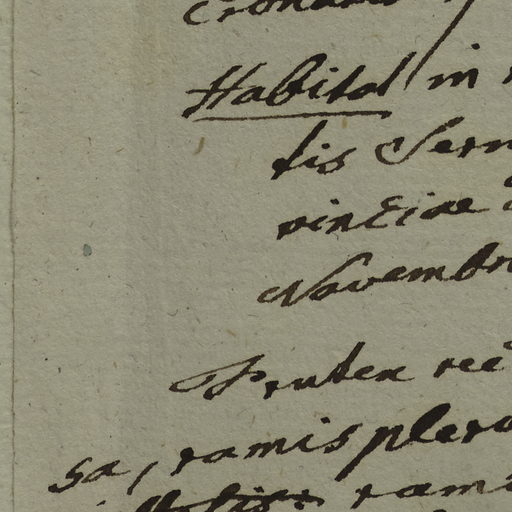 Habitat in
tis Serr
vinciae
Novembr
Frutex rec
sa, ramis plero
rami